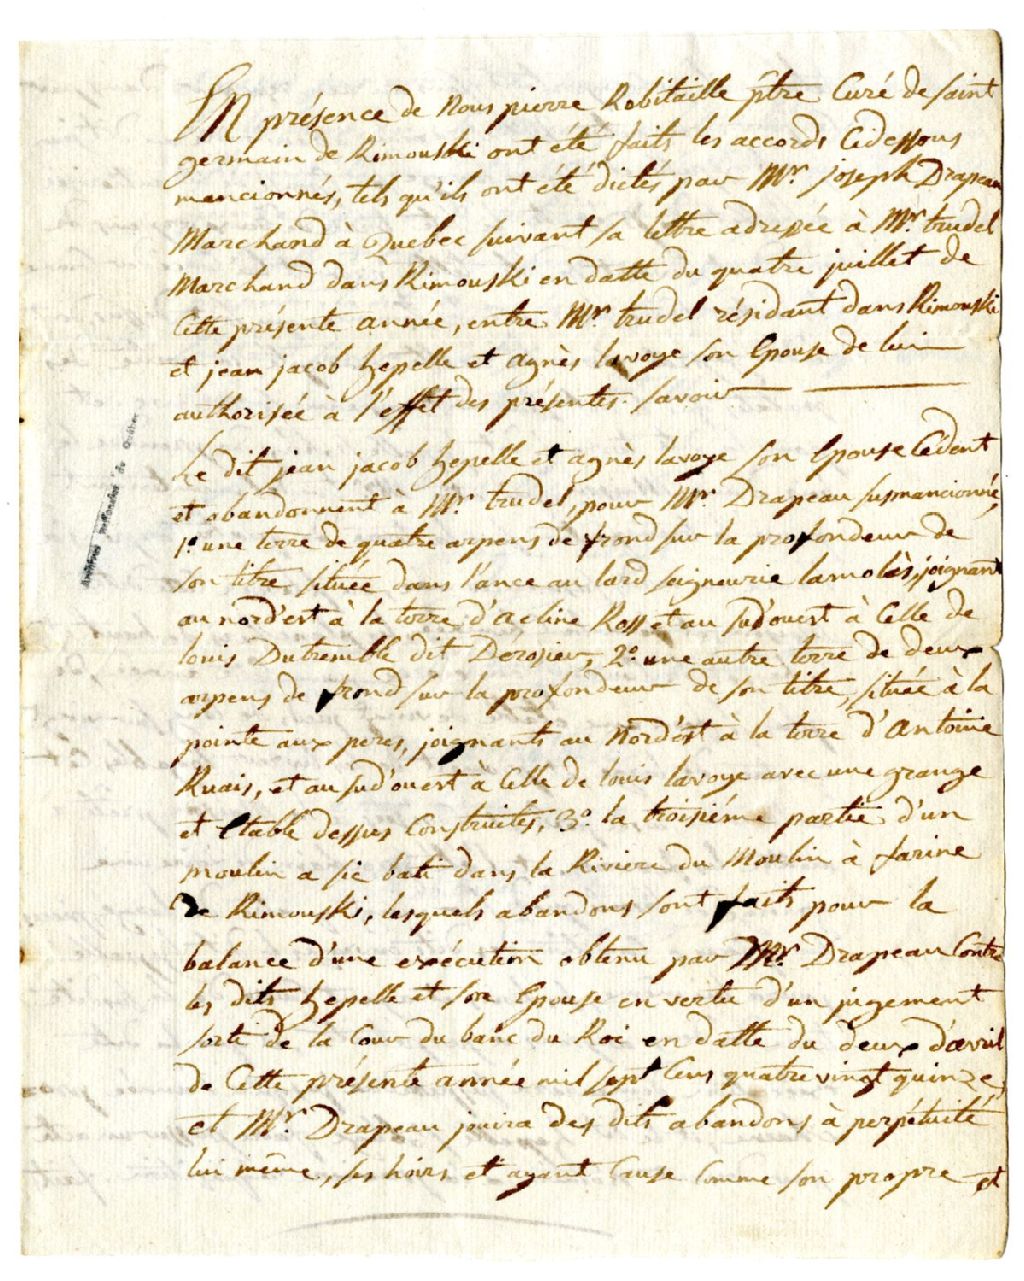 En présence de Nous pierre Robitaille ptre Curé de saint
germain de Rimouski ont été faits les accords Cidessous
mancionnés, tels qu'ils ont été dictés par Mr. joseph Drapeau
Marchand à Quebec suivant sa lettre adressée à Mr. trudel
Marchand dans Rimouski en datte du quatre juillet de
Cette présente année, entre Mr. trudel résidant dans Rimouski
et jean jacob hepelle et agnès lavoye son Epouse de lui
authorisée à l'effet des présentes. Savoir
Le dit jean jacob hepelle et agnès lavoye son Epouse Cèdent
et abandonnent à Mr. trudel, pour Mr. Drapeau susmancionné,
1º. une terre de quatre arpens de frond sur la profondeur de
son titre, située dans l'ance au lard seigneurie lamolès, joignant
au nord'est à la terre d'acline Ross et au sud'ouest à Celle de
louis Dutremble dit Derosier, 2º. une autre terre de deux
arpens de frond sur la profondeur de son titre, située à la
pointe aux peres, joignants au Nord'est à la terre d'Antoine
Ruais, et au sud'ouest à Celle de louis lavoye avec une grange
et Etable dessus Construites, 3º. la troisième partie d'un
moulin a sie bati dans la Riviere du Moulin à farine
de Rimouski, lesquels abandons sont faits pour la
balance d'une exécution obtenu par Mr. Drapeau Contre
les dits hepelle et son Epouse en vertu d'un jugement
sorti de la Cour du banc du Roi en datte du deux d'avril
de Cette présente année mil sept Cens quatre vingt quinze,
et Mr. Drapeau jouira des dits abandons à perpétuité
lui même, ses hoirs et ayant Cause Comme son propre et
Archives nationales du Québec